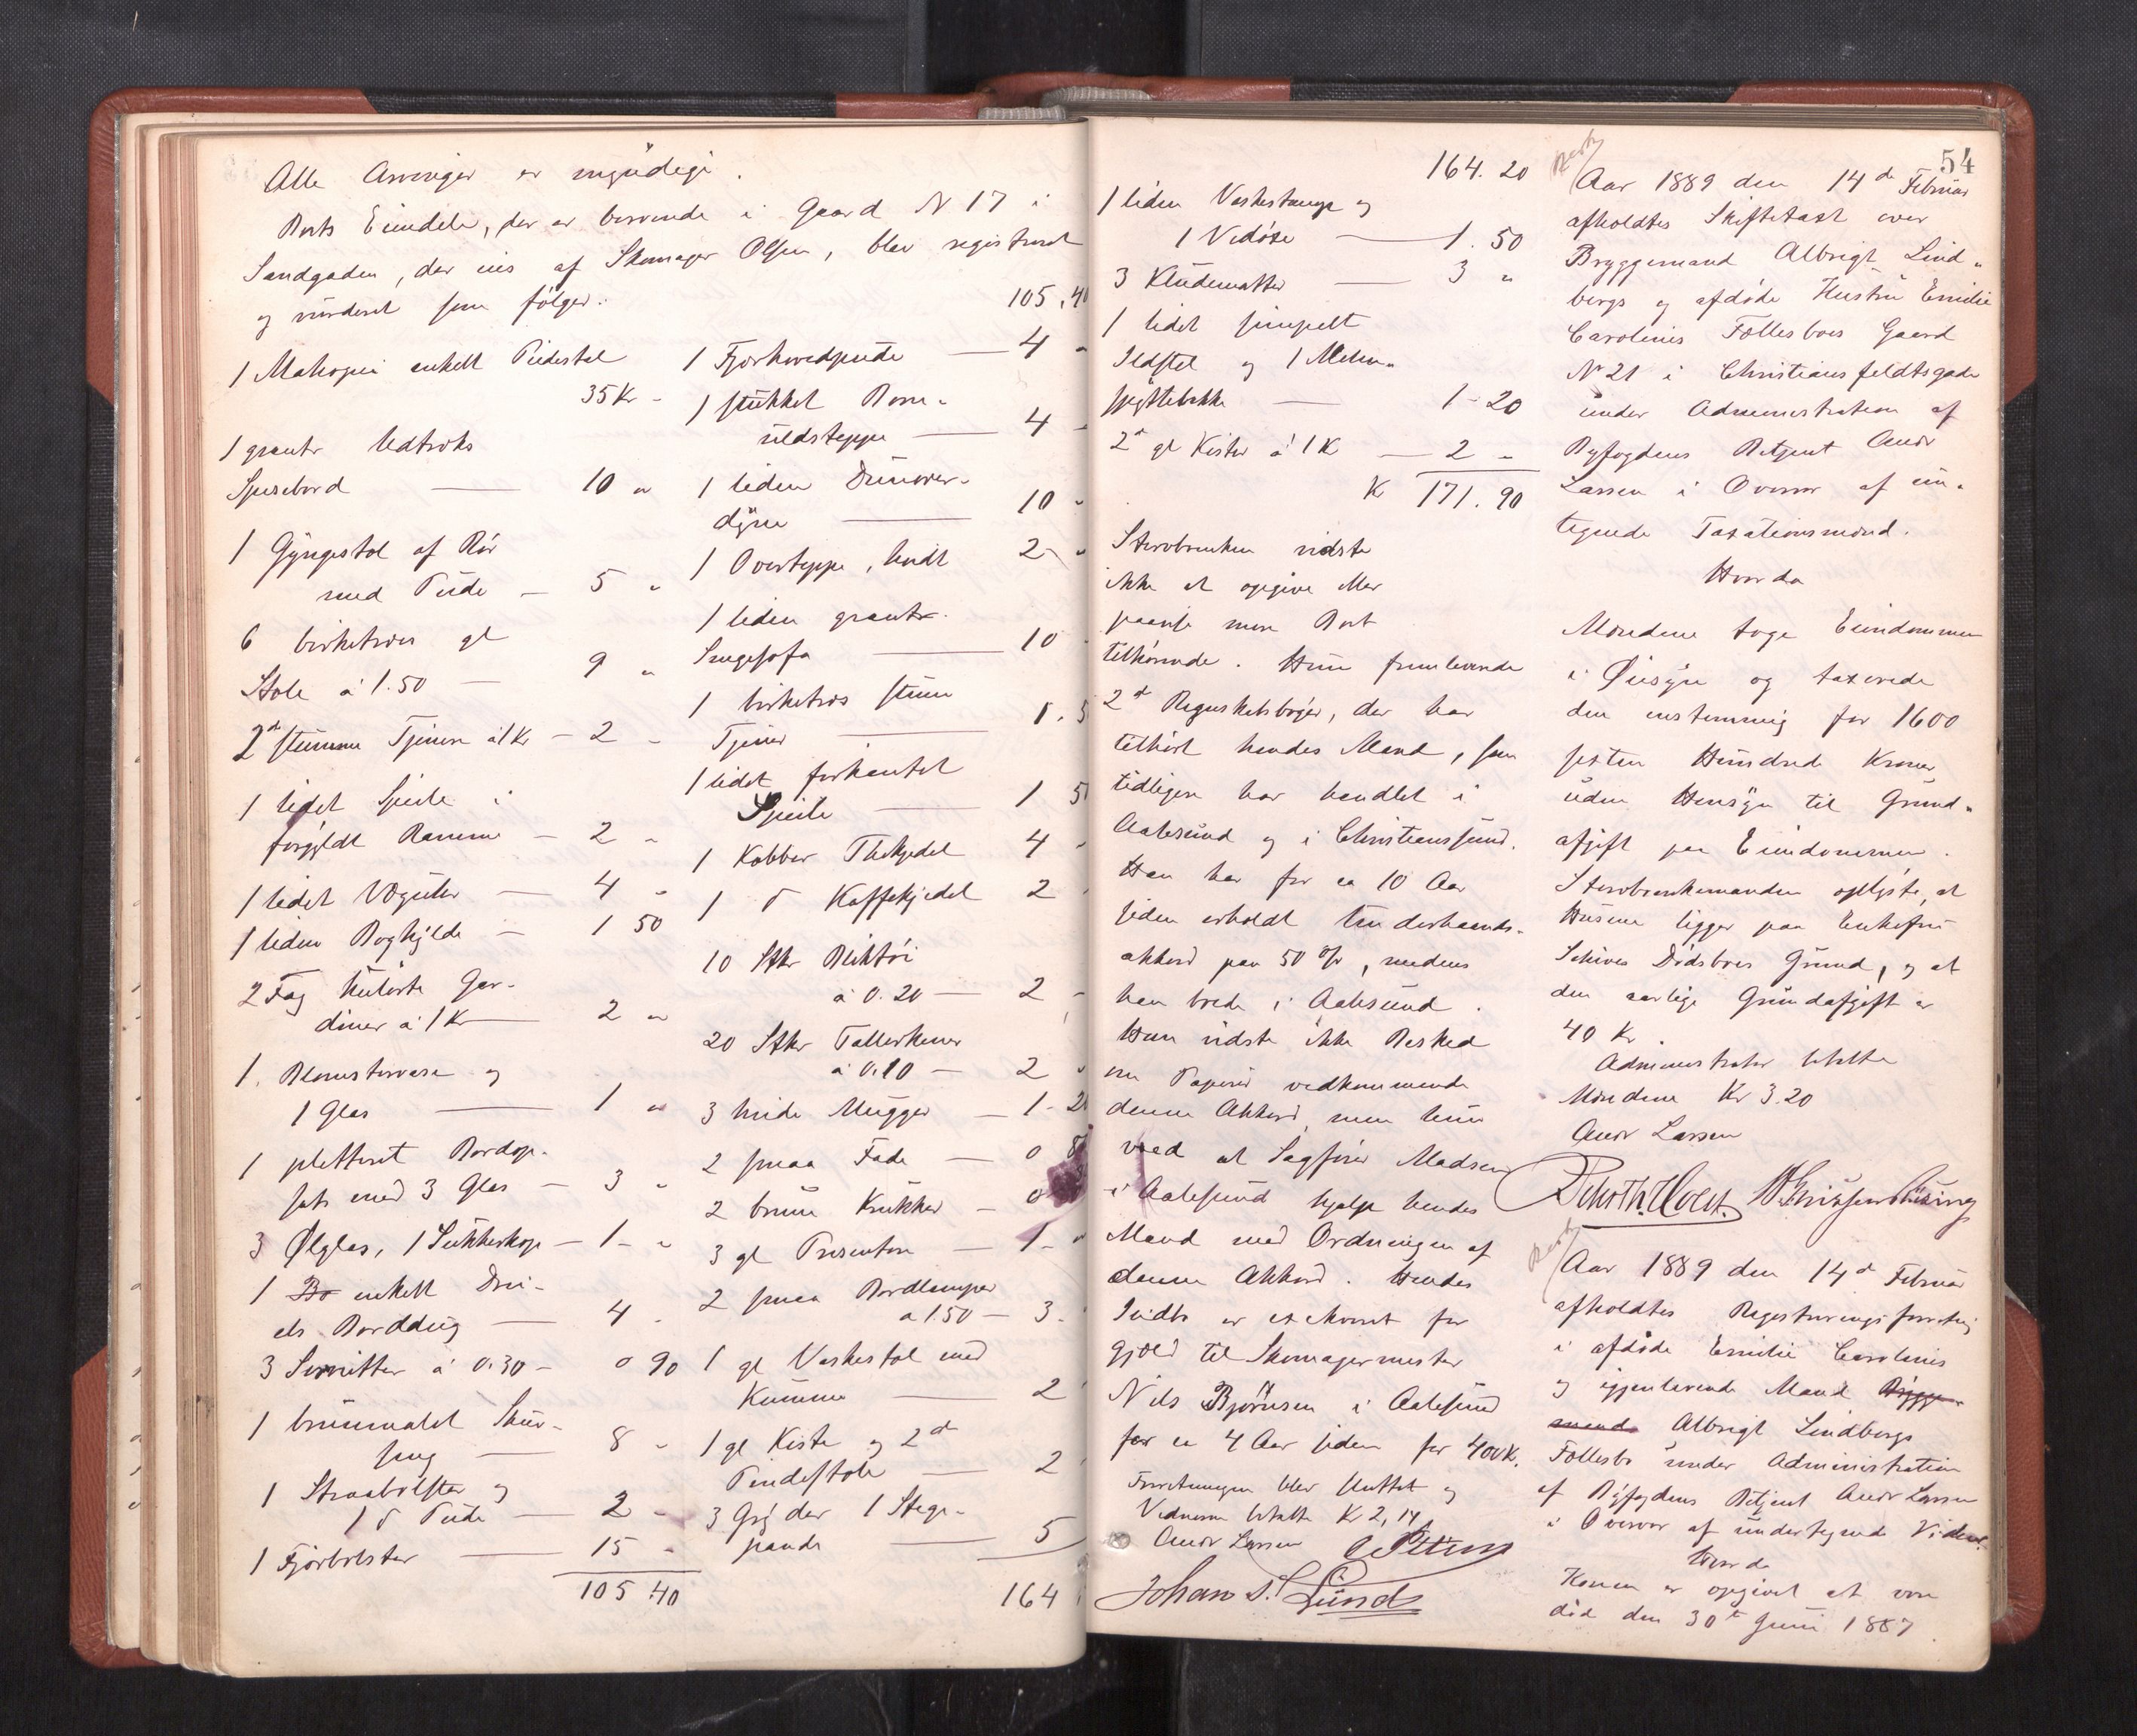 Alle Arvinger er myndige.
Boets Eiendele, der er beroende i Gaard N 17 i
Sandgaden, der eies af Skomager Olsen, blev registreret
og vurderet som følger:
1 Mahogni enkelt Pidestal
35 Kr -
1 grantr Udtræks
Spisebord — 10 "
1 Gyngestol af Rør
med Pude — 5 "
6 birketræs gl
Stole á 1.50 — 9 "
2de stumme Tjenere á 1 Kr — 2 -
1 lidet Speile i
forgyldt Ramme — 2 -
1 lidet Væguhr — 4 -
1 liden Boghylde — 1 50
2 Fag kulørte Gar-
diner á 1 Kr — 2 "
1. Blomstervase og
1 Glas — 1 "
1 pletteret Bordop-
sats med 3 Glas — 3 "
3 Ølglas, 1 Sukkerkop — 1 - "
1 Bo enkelt Drei-
els Borddug — 4 -
3 Servietter á 0.30 — 0 90
1 brunmalet Skuv-
seng — 8 -
1 Straabolster og
1 d Pude — 2 -
1 Fjørbolster — 15 -
105.40
105.40
1 Fjørhovedpude — 4 "
1 stukket Bom-
uldsteppe — 4 -
1 liden Dunover-
dyne — 10 -
1 Overteppe, hvidt 2 - "
1 liden grantr.
Sengesofa — 10 -
1 birketræs stum
Tjener — 1.5
1 lidet firkantet
Speile — 1 5
1 Kobber Thekjedel 4 -
1 d Kaffekjedel 2
10 Stkr Bliktøi
á 0.20 — 2 -
20 Stkr Tallerkener
á 0.10 — 2 "
3 hvide Mugger — 1 - 2
2 smaa Fade — 0 8
2 brune Krukker — 0
3 gl Presenter — 1 - "
2 smaa Bordlamper
a 1.50 — 3 -
1 gl Vaskestol med
Kumme — 2
1 gl Kiste og 2de
Pindestole — 2
3 Gryder 1 Stege-
pande — 5
164
164.20
1 liden Vaskestampe og
1 Vedøxe — 1.50
3 Kludematter — 3 "
1 lidet simpelt
Ildstel og 1
spyttebakke — 1 - 20
2de gl Kister á 1 K — 2 -
K 171.90
Stervboenken vidste
ikke at opgive eller
paavise mere Boet
tilhørende. Hun fremleverede
2de Regnskabsbøger, der har
tilhørt hendes Mand, som
tidligere har handlet i
Aalesund og i Christianssund.
Han har for ca 10 Aar
siden erholdt Underhaands-
akkord paa 50 %, medens
han boede i Aalesund.
Hun vidste ikke Besked
om Papirer vedkommende
denne Akkord, men hun
veed at Sagfører Madsen
i Aalesund hjalp hendes
Mand med Ordningen af
denne Akkord. Hendes
Indbo er exekveret for
Gjæld til Skomagermester
Nils Bjørnsen i Aalesund
for ca 4 Aar siden for 400 K.
Forretningen blev sluttet og
Vidnerne betalte Kr 2,14
Andr Larsen
Johan S. Lund
54
Aar 1889 den 14de Februar
afholdtes Skiftetaxt over
Bryggemand Albrigt Lind-
bergs og afdøde Hustru Emilie
Carolines Fællesboes Gaard
No 21 i Christiansfeldtsgade
under Administration af
Byfogdens Betjent Andr
Larsen i Overvær af un-
tegnede Taxationsmænd.
Hvorda
Mændene toge Eiendommen
i Øiesyn og taxerede
den enstemmig for 1600
sexten Hundrede Kroner
uden Hensyn til Grund-
afgift paa Eiendommen.
Stervboenkemanden oplyste, at
Husene ligger paa Enkefru
Schives Dødsboes Grund, og at
den aarlige Grundafgift er
40 Kr.
Administrator betalte
Mændene Kr 3.20
Andr Larsen
Aar 1889 den 14de Februar
afholdtes Registreringsforretnig
i afdøde Emilie Carolines
og igjenlevende Mand Brygge-
mands Albrigt Lindbergs
Fællesbo under Administration
af Byfogdens Betjent Andr Larsen
i Overvær af undertegnede Vidner.
Hvorda
Konen er opgivet at være
død den 30te Juni 1887.